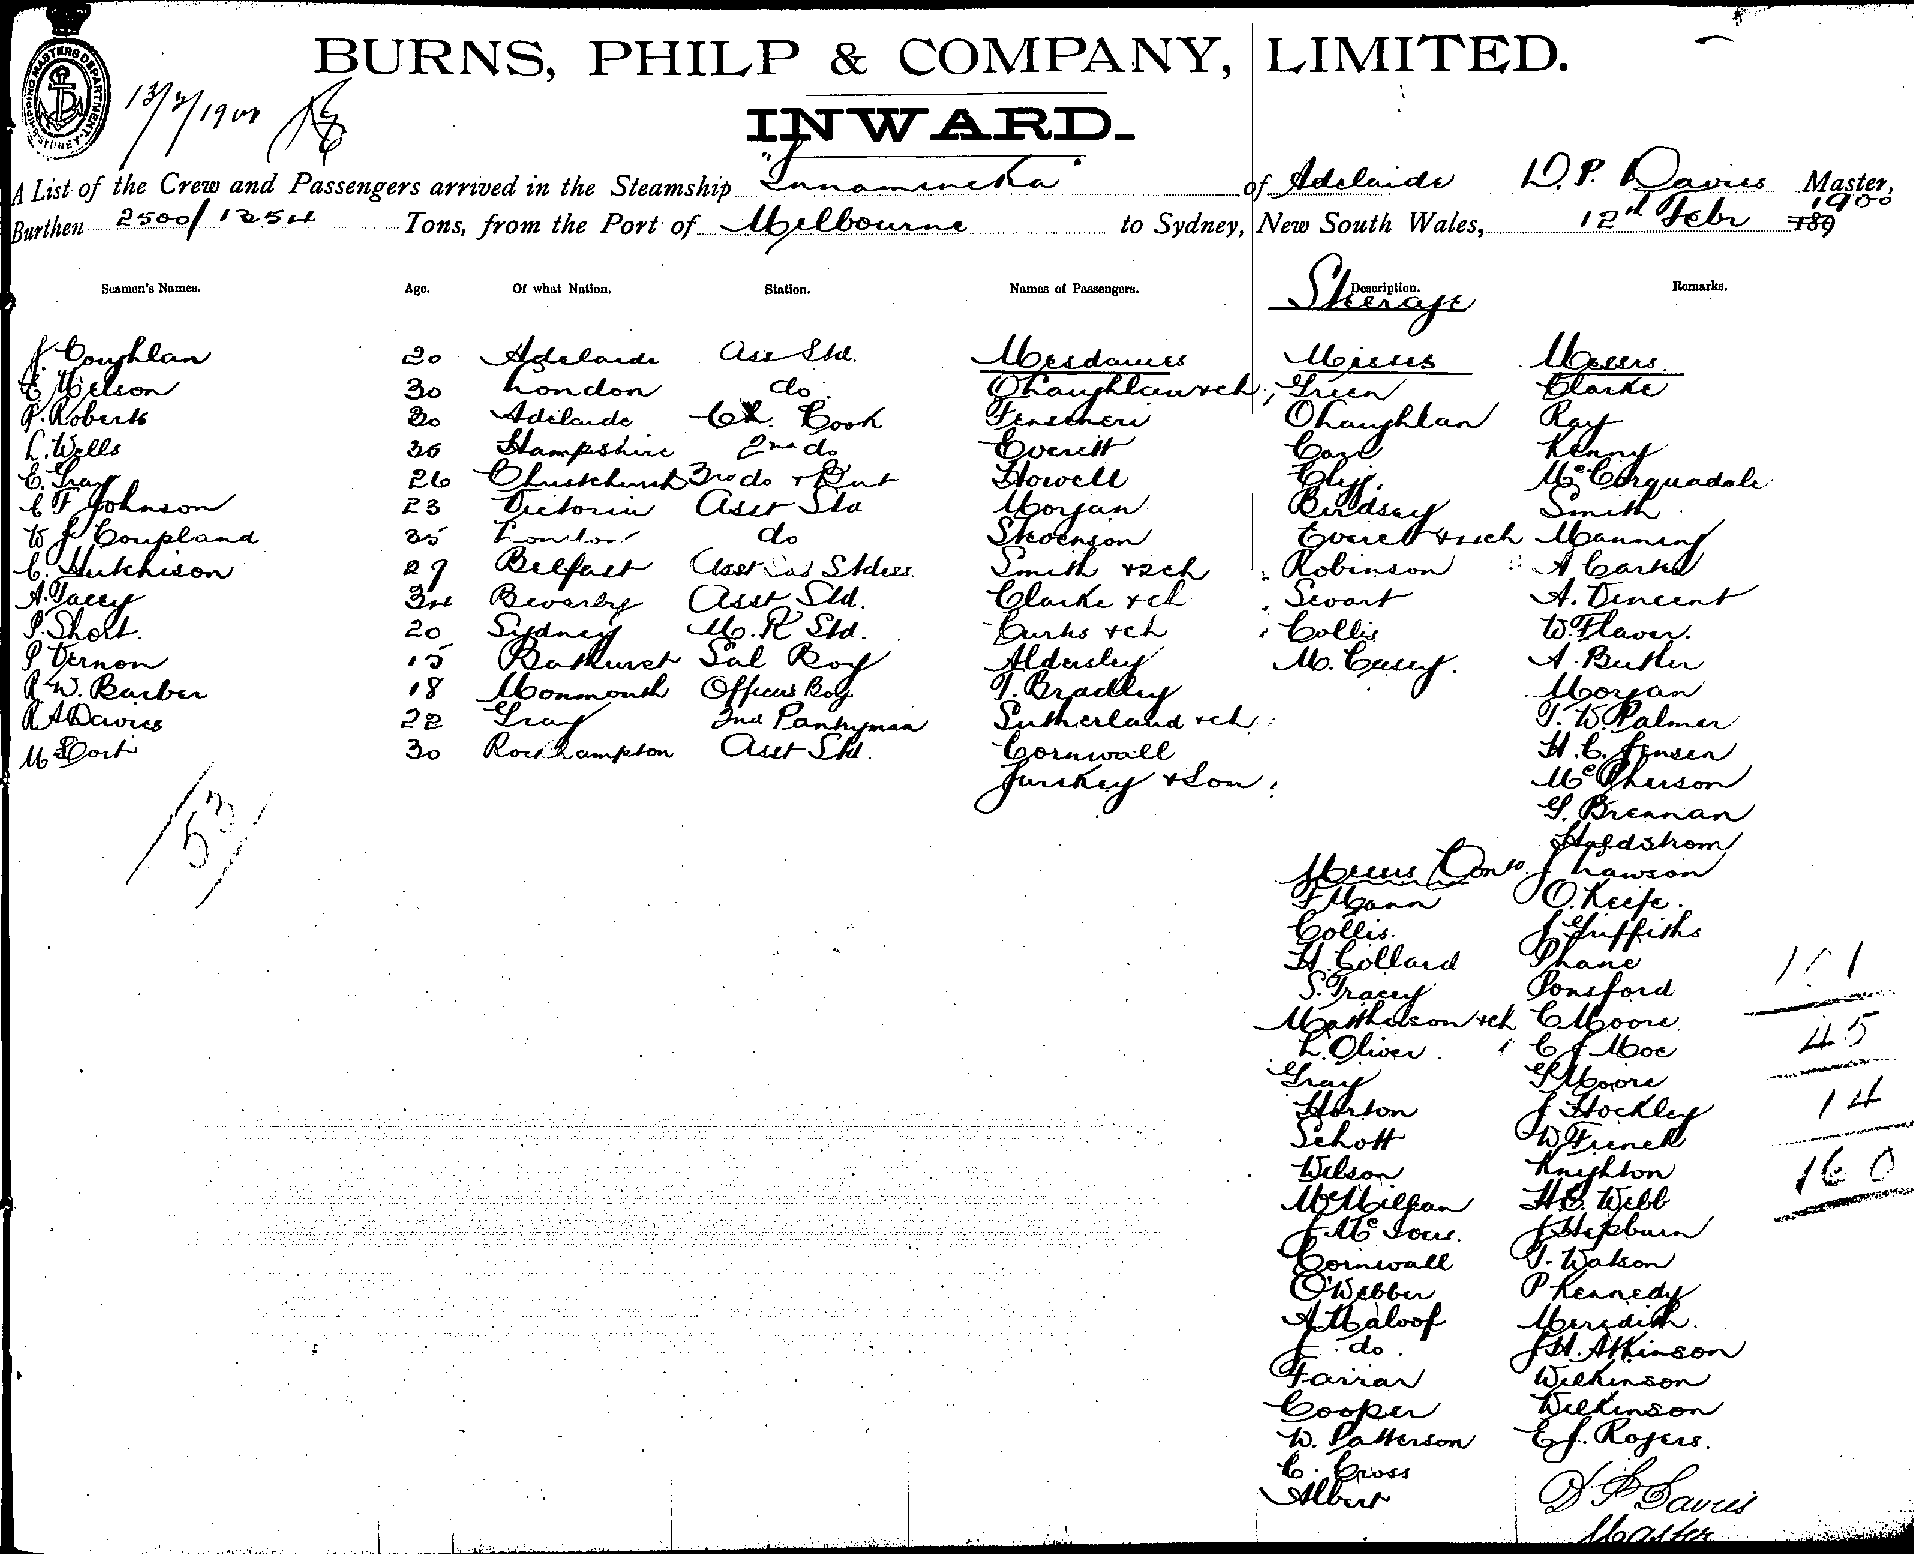 SHIPPING MASTERS DEPARTMENT
SYDNEY
BURNS, PHILP & COMPANY, LIMITED.
13/2/1900
INWARD.
A List of the Crew and Passengers arrived in the Steamship "Innamincka" of Adelaide D. P. Davies Master,
Burthen 2500/1254 Tons, from the Port of Melbourne to Sydney, New South Wales, 12th Febr 189 1900
Seamen's Names. Age. Of what Nation. Station. Names of Passengers. Description. Remarks.
Steerage
J Coughlan 20 Adelaide Ass Std. Mesdames Misses Messrs
E Nelson 30 London do. O'Laughlan + ch Green Clarke
P. Roberts 30 Adelaide Ch. Cook O'Laughlan Ray
L. Wells 36 Hampshire 2nd do Everitt Kenny
E. Gray 26 Christchurch 3rd do + But Howell McCorquadale
C F Johnson 23 Victoria Asst Std Morgan Birdsey Smith
W J Coupland 35 London do Stevenson Everett + ch Manning
C. Hutchison 29 Belfast Asst Stdess Smith + 2 ch Robinson
A. Tacey 34 Beverley Asst Std. Clarke + ch A. Vincent
P. Short. 20 Sydney M. R Std. + ch Collis W. Flaver.
P Vernon 15 Bathurst Sal Boy Aldersley M. Casey. A. Butler
R W. Barber 18 Monmouth Officers Boy T. Bradley Morgan
R A Davies 22 Gray 2nd Pantryman Sutherland + ch T. W. Palmer
30 Rockhampton Asst Std. Cornwall H. C. Jensen
+ Son McPherson
53
G. Brennan
Misses Cont. J Lawson
F Mann O. Keefe.
Collis. J Griffiths
H. Collard Phane 101
S. Tracey Ponsford
Mattheson + ch C Moore
L. Oliver. C J Moe 45
Gray G Moore
Horton J Hockley 14
Schott W French
Wilson Knighton 160
McMillan H. E. Webb
J Hepburn
Cornwall T. Watson
O Webber P Kennedy
A Maloof Meredith.
J do. J H. Atkinson
Farrar Wilkinson
Cooper Wilkinson
W. Patterson E J. Rogers.
C. Cross
Albert D P Davies
Master